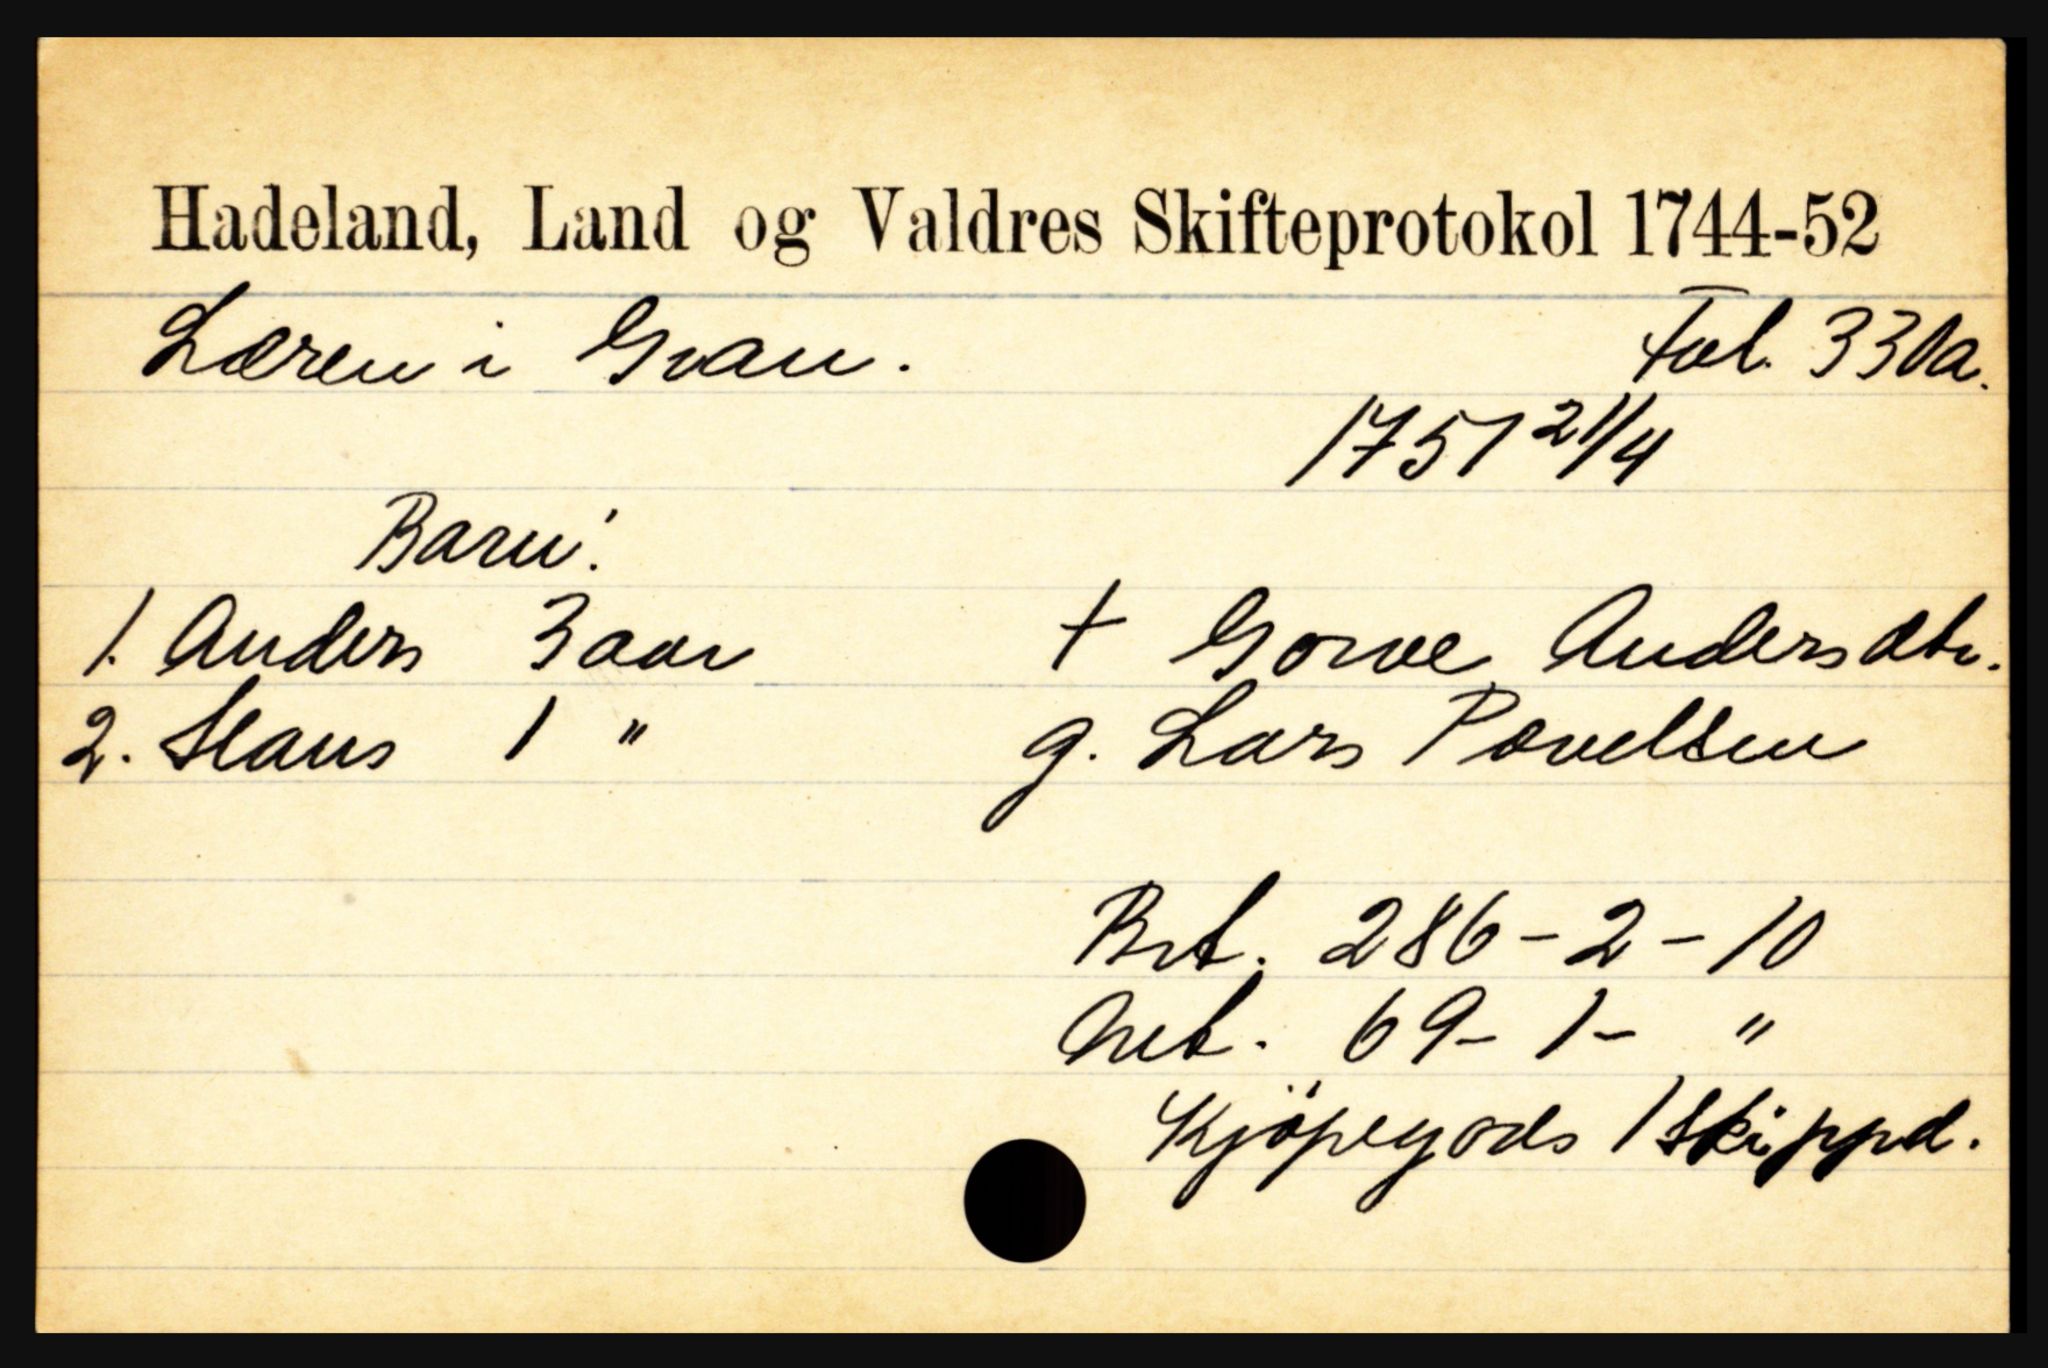 Hadeland, Land og Valdres Skifteprotokol 1744-52
Læren i Gran. Fol. 330a.
1751 21/4
Barn:
1. Anders 3 aar † Gorve Andersdtr.
2. Hans 1 " g. Lars Povelsen
Brt. 286 - 2 - 10
Net. 69 - 1 - "
Kjöpegods 1 Skippd.